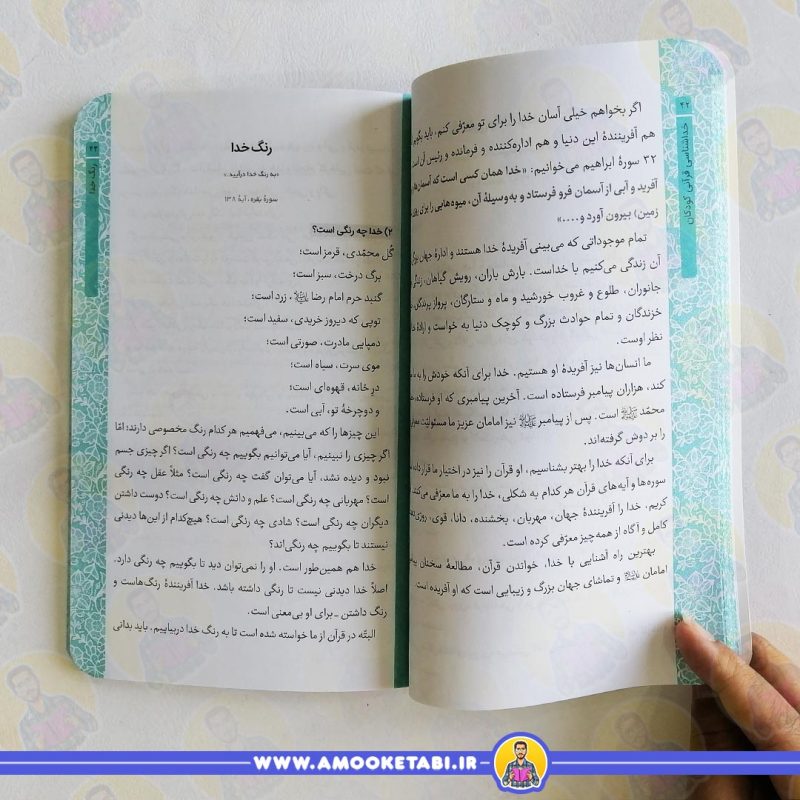 ۴۲
خداشناسی قرآنی کودکان
اگر بخواهم خیلی آسان خدا را برای تو معرّفی کنم، باید بگویم
هم آفرینندهٔ این دنیا و هم اداره‌کننده و فرمانده و رئیس آن است
۳۲ سورهٔ ابراهیم می‌خوانیم: «خدا همان کسی است که آسمان‌ها
آفرید و آبی از آسمان فرو فرستاد و به‌وسیلهٔ آن، میوه‌هایی را برای
زمین) بیرون آورد و....»
تمام موجوداتی که می‌بینی آفریدهٔ خدا هستند و ادارهٔ جهان
آن زندگی می‌کنیم با خداست. بارش باران، رویش گیاهان، زندگی
جانوران، طلوع و غروب خورشید و ماه و ستارگان، پرواز پرندگان،
خزندگان و تمام حوادث بزرگ و کوچک دنیا به خواست و ارادهٔ
نظر اوست.
ما انسان‌ها نیز آفریدهٔ او هستیم. خدا برای آنکه خودش را به ما
کند، هزاران پیامبر فرستاده است. آخرین پیامبری که او فرستاده،
محمّد ﷺ است. پس از پیامبر ﷺ نیز امامان عزیز ما مسئولیّت
را بر دوش گرفته‌اند.
برای آنکه خدا را بهتر بشناسیم، او قرآن را نیز در اختیار ما قرار داده
سوره‌ها و آیه‌های قرآن هر کدام به شکلی، خدا را به ما معرّفی می‌کنند.
کریم، خدا را آفرینندهٔ جهان، مهربان، بخشنده، دانا، قوی،
کامل و آگاه از همه‌چیز معرّفی کرده است.
بهترین راه آشنایی با خدا، خواندن قرآن، مطالعهٔ سخنان
امامان و تماشای جهان بزرگ و زیبایی است که او آفریده است.
۴۳
رنگ خدا
رنگ خدا
«به رنگ خدا درآیید.»
سورهٔ بقره، آیهٔ ۱۳۸
۲) خدا چه رنگی است؟
گُل محمّدی، قرمز است؛
برگ درخت، سبز است؛
گنبد حرم امام رضا، زرد است؛
توپی که دیروز خریدی، سفید است؛
دمپایی مادرت، صورتی است؛
موی سرت، سیاه است؛
درِ خانه، قهوه‌ای است؛
و دوچرخهٔ تو، آبی است.
این چیزها را که می‌بینیم، می‌فهمیم هر کدام رنگ مخصوصی دارند؛ امّا
اگر چیزی را نبینیم، آیا می‌توانیم بگوییم چه رنگی است؟ اگر چیزی جسم
نبود و دیده نشد، آیا می‌توان گفت چه رنگی است؟ مثلاً عقل چه رنگی
است؟ مهربانی چه رنگی است؟ علم و دانش چه رنگی است؟ دوست داشتن
دیگران چه رنگی است؟ شادی چه رنگی است؟ هیچ‌کدام از این‌ها دیدنی
نیستند تا بگوییم چه رنگی‌اند؟
خدا هم همین‌طور است. او را نمی‌توان دید تا بگوییم چه رنگی دارد.
اصلاً خدا دیدنی نیست تا رنگی داشته باشد. خدا آفرینندهٔ رنگ‌هاست و
رنگ داشتن ـ برای او بی‌معنی است.
البتّه در قرآن از ما خواسته شده است تا به رنگ خدا دربیاییم. باید بدانی
WWW.AMOOKETABI.IR